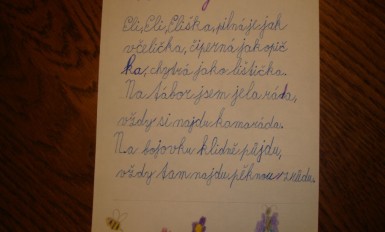 Eli, Eli, Eliška, pilná jí jak
včelička, čiperná jak opič
ka, chytrá jako lištička.
Na tábor jsem jela ráda,
vždy si najdu kamaráda.
Na bojovku klidně půjdu,
vždy tam najdu pěknou